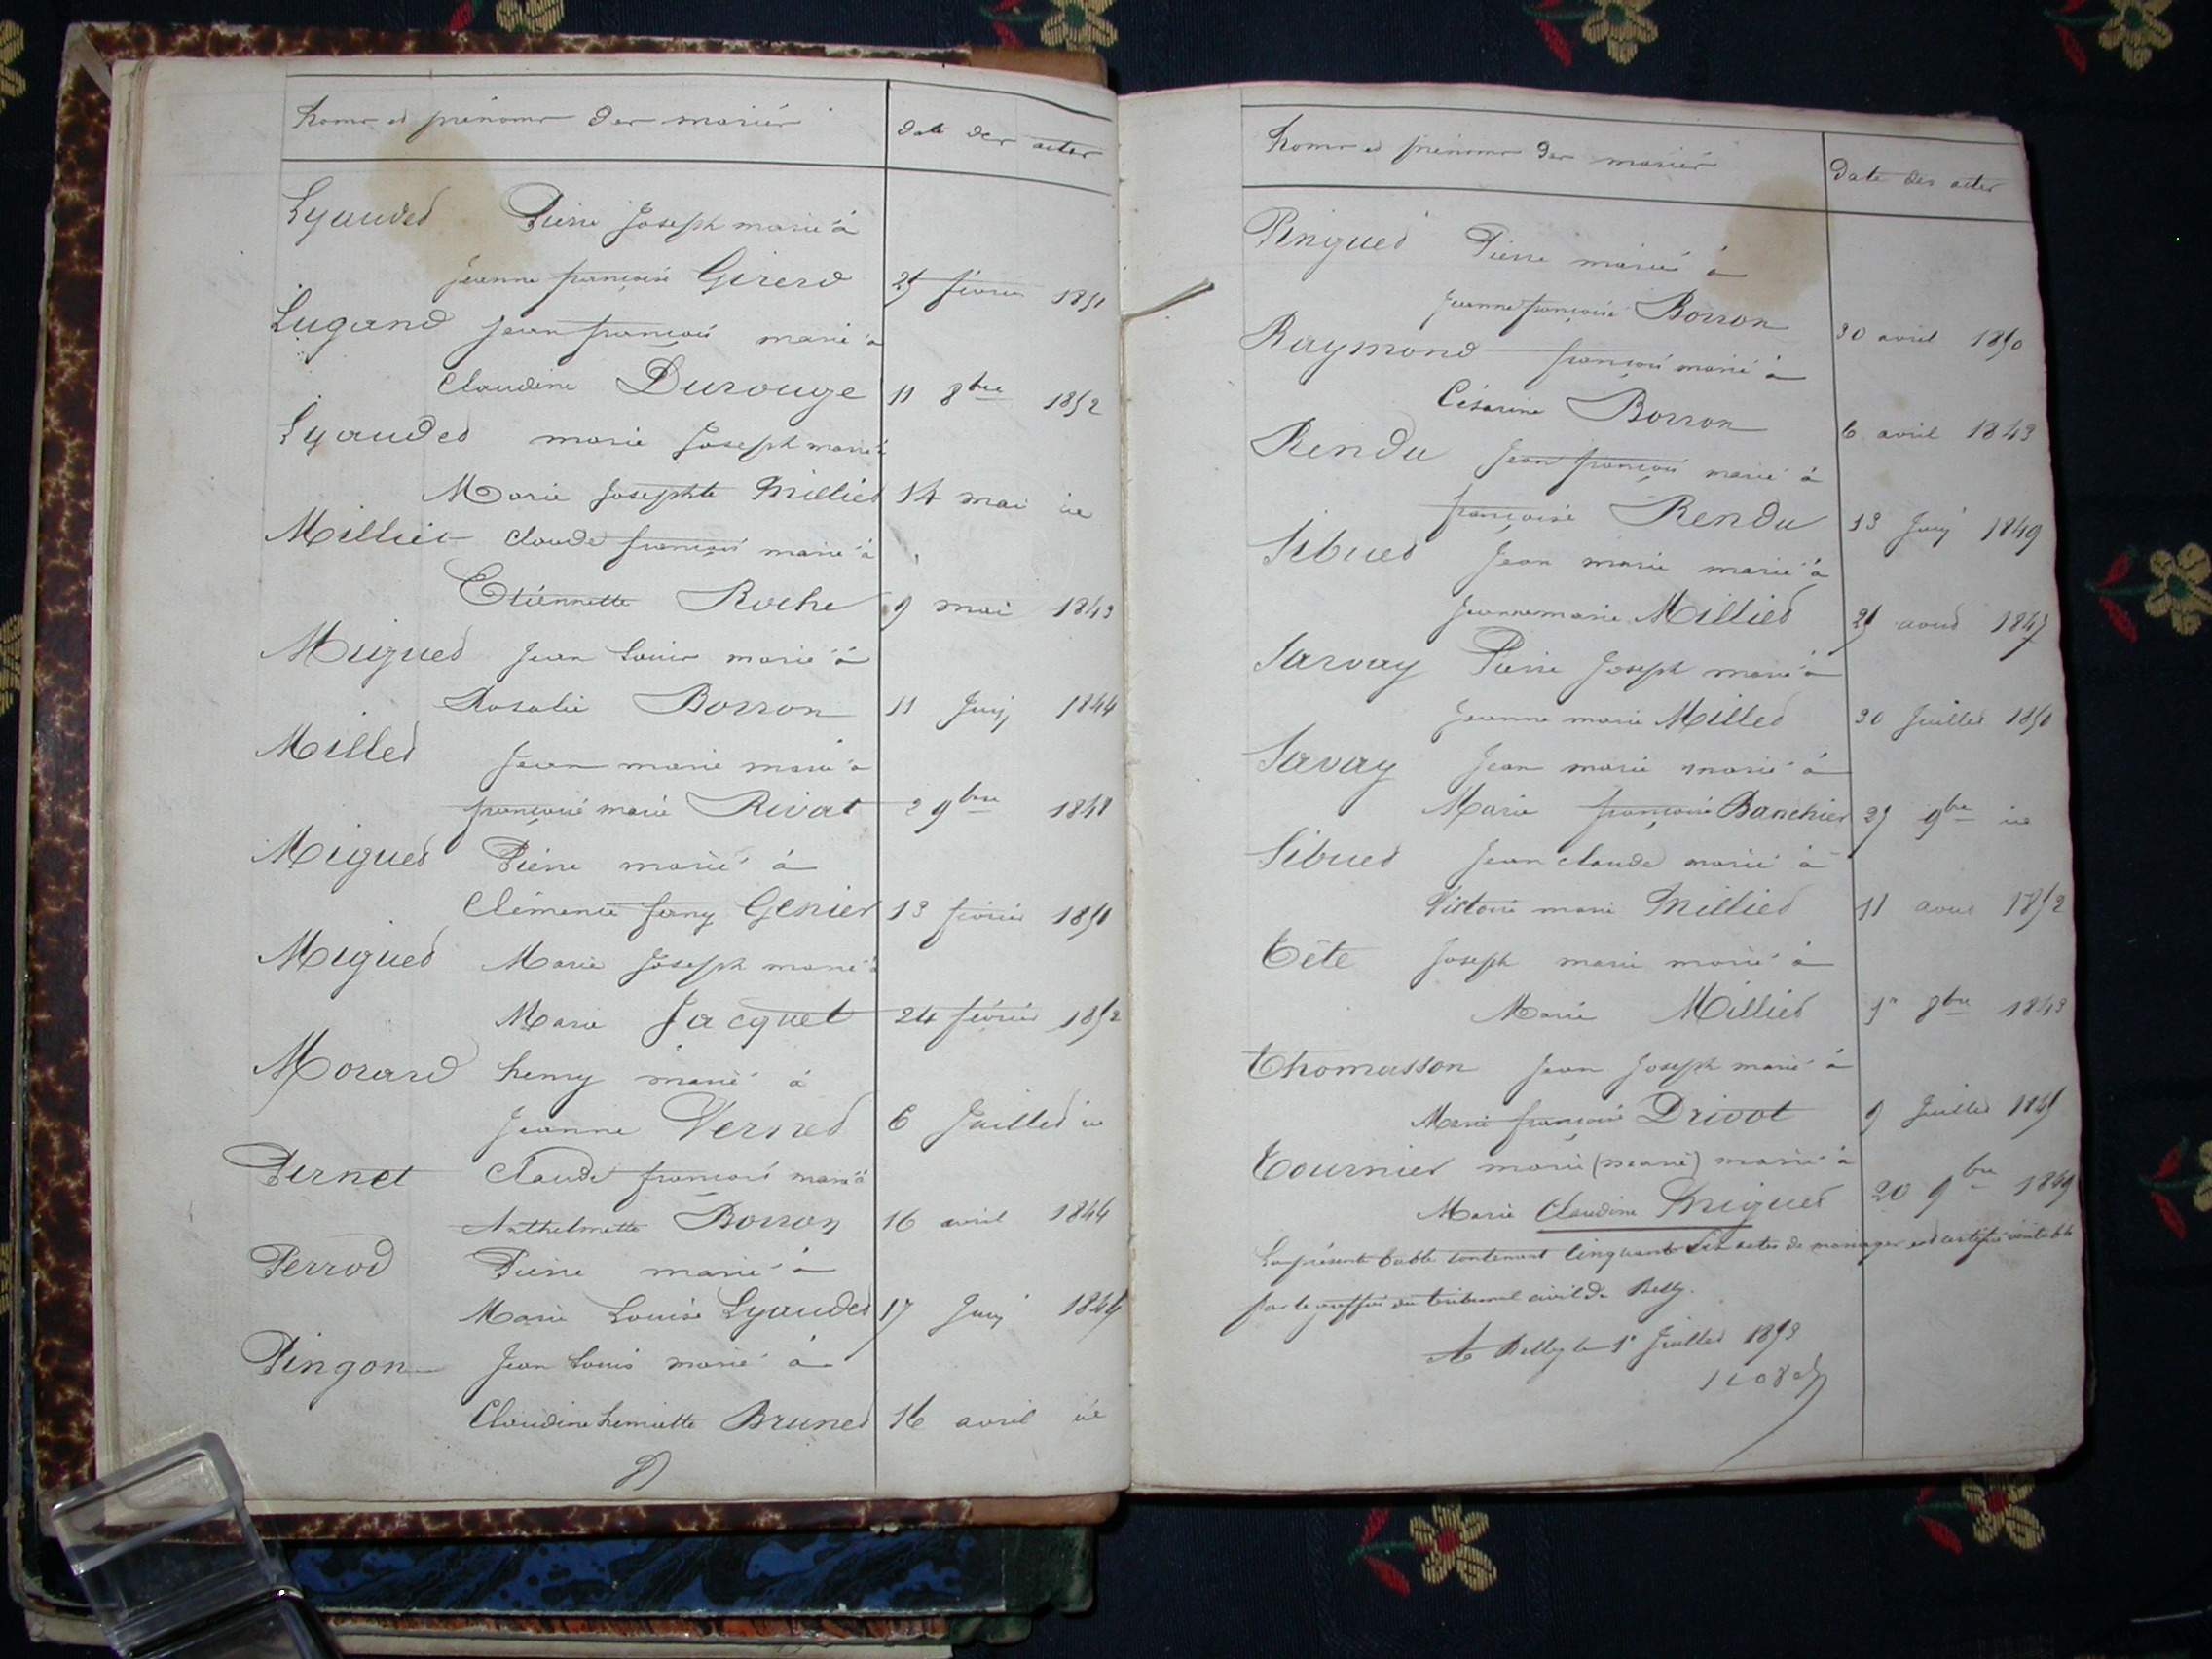 Noms et prénoms des mariés
date des actes
Lyaudet Pierre Joseph marié à
Jeanne françoise Girerd 25 février 1851
Lugand Jean françois marié à
Claudine Durouge 11 8bre 1852
Lyaudet marie Joseph marié à
Marie Josephte Milliet 14 mai id
Milliet Claude françois marié à
Etiennette Roche 9 mai 1843
Miguet Jean Louis marié à
Rosalie Borron 11 Juin 1844
Millet Jean marie marié à
françoise marie Rivat 2 9bre 1848
Miguet Pierre marié à
Clémence fany Genier 13 février 1851
Miguet Marie Joseph marié à
Marie Jacquet 24 février 1852
Morard henry marié à
Jeanne Vernet 6 Juillet id
Pernet Claude françois marié à
Anthelmette Borron 16 avril 1844
Perrod Pierre marié à
Marie Louise Lyaudet 17 Juin 1846
Pingon Jean Louis marié à
Claudine henriette Brunet 16 avril id
Noms et prénoms des mariés
date des actes
Pinguet Pierre marié à
Jeanne françoise Borron 30 avril 1850
Raymond françois marié à
Césarine Borron 6 avril 1843
Rendu Jean françois marié à
françoise Rendu 13 Juin 1849
Sibuet Jean marie marié à
Jeanne marie Milliet 21 aout 1847
Sarvay Pierre Joseph marié à
Jeanne marie Millet 30 Juillet 1850
Savay Jean marie marié à
Marie françoise Banchier 25 9bre id
Sibuet Jean claude marié à
Victorie marie Milliet 11 aout 1852
Tête Joseph marie marié à
Marie Milliet 1er 8bre 1843
Thomasson Jean Joseph marié à
Marie françoise Drivot 9 Juillet 1845
Tournier marie marié à
Marie Claudine Miguet 20 9bre 1849
La présente table contenant Cinquante Six actes de mariages est certifié véritable
par le greffier du tribunal civil de Belley.
A Belley le 1er Juillet 1853